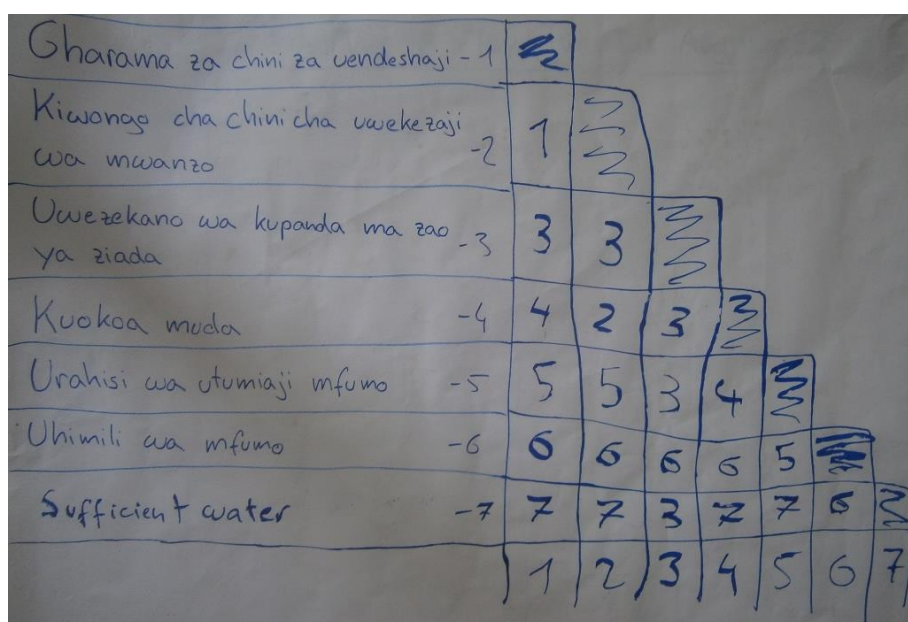 Gharama za chini za uendeshaji - 1
Kiwongo cha chini cha uwekezaji 1
wa mwanzo -2
Uwezekano wa kupanda ma zao 3 3
ya ziada -3
Kuokoa muda -4 4 2 3
Urahisi wa utumiaji mfumo -5 5 5 3 4
Uhimili wa mfumo -6 6 6 6 6 5
Sufficient water -7 7 7 3 7 7 6
1 2 3 4 5 6 7